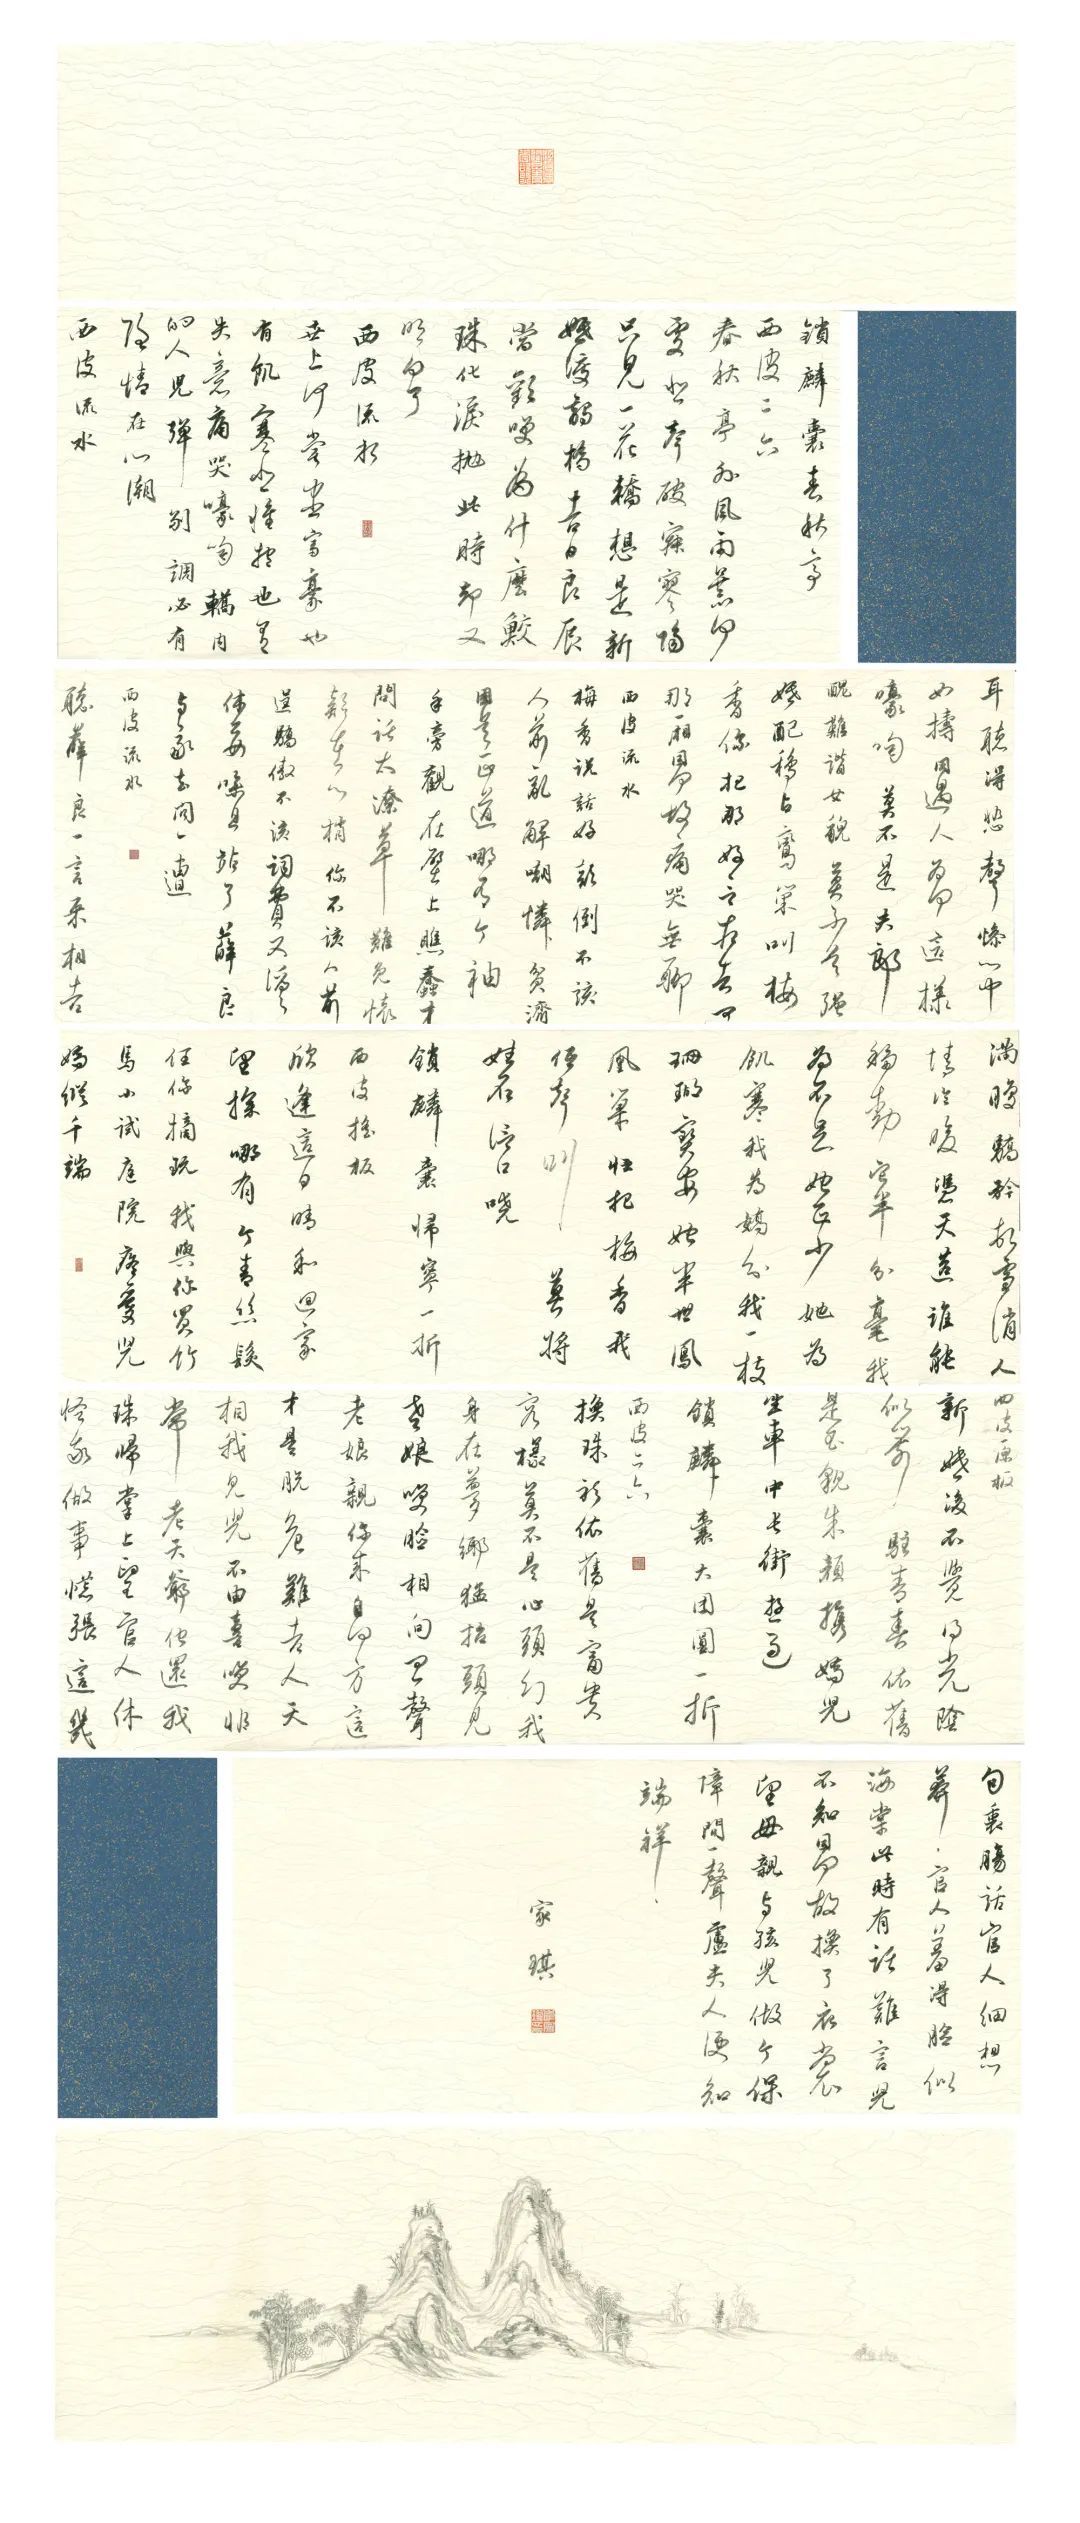 鎖麟囊春秋亭
西皮二六
春秋亭外風雨暴何
處悲聲破寂寥隔
只見一花轎想是新
婚渡鵲橋吉日良辰
當歡笑為什麼鮫
珠化淚拋此時卻又
明白了
西皮流水
世上何嘗盡富豪也
有飢寒悲懷抱也有
失意痛哭嚎啕轎內
的人兒彈別調必有
隱情在心潮
西皮流水
耳聽得悲聲慘心中
如搗同遇人為何這樣
嚎啕莫不是夫郎
醜難諧女貌莫不是強
婚配鴉占鸞巢叫梅
香你把那好言相告問
那廂因故痛哭無聊
西皮流水
梅香說話好顛倒不該
人前亂解嘲憐貧濟
困是正道哪有个袖
手旁觀在壁上瞧蠢才
問話太潦草難免懷
疑在心梢你不該人前
逞驕傲不該詞費又滔
休要噪且站了薛良
与我去問一遭
西皮流水
聽薛良一言來相告
滿腹驕矜頓雪消人
情冷暖憑天造誰能
移動它半分毫我
為不足她正少她為
飢寒我為嬌分我一枝
珊瑚寶安她半世鳳
凰巢忙把梅香我
低聲叫莫將
姓名信口嘵
鎖麟囊歸寧一折
西皮搖板
欣逢這日晴和迴家
望探哪有个青絲髮
任你摘玩我與你買竹
馬小試庭院疼愛兒
嬌縱千端
西皮原板
新婚後不覺得光陰
似箭駐青春依舊
是玉貌朱顏攜嬌兒
坐車中長街遊過
鎖麟囊大团圓一折
西皮二六
換珠衫依舊是富貴
容樣莫不是心頭幻我
身在夢鄉猛抬頭見
老娘笑臉相向問聲
老娘親你來自何方這
才是脫危難吉人天
相我見兒不由喜笑非
常老天爺他還我
珠歸掌上望官人休
怪我做事慌張這幾
句衷腸話官人細想
莽官人羞得臉似
海棠此時有話難言兒
不知因故換了衣裳
望母親与孩兒做个保
障問一聲盧夫人便知
端詳
家琪